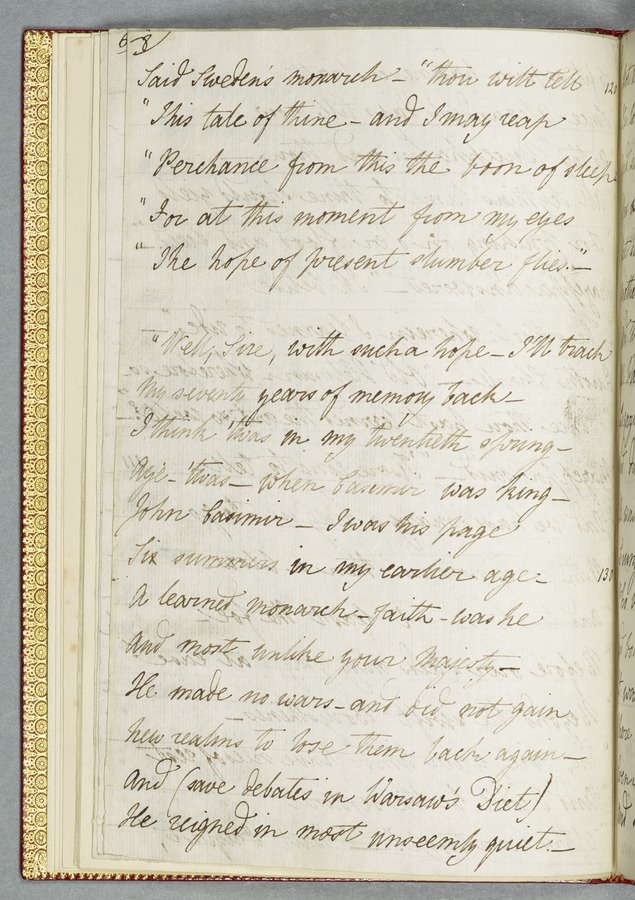 8
Said Sweden's monarch – "thou wilt tell 120
"This tale of thine – and I may reap
"Perchance from this the boon of sleep
"For at this moment from my eyes
"The hope of present slumber flies." –
– "Well, Sire, with such a hope – I'll track
My seventy years of memory back –
I think 'twas in my twentieth spring –
Aye – 'twas – when Casimir was king –
John Casimir – I was his page
Six summers in my earlier age – 130
A learned monarch – faith – was he
And most unlike your Majesty –
He made no wars – and did not gain
New realms to lose them back again –
And (save debates in Warsaw's Diet)
He reigned in most unseemly quiet. –